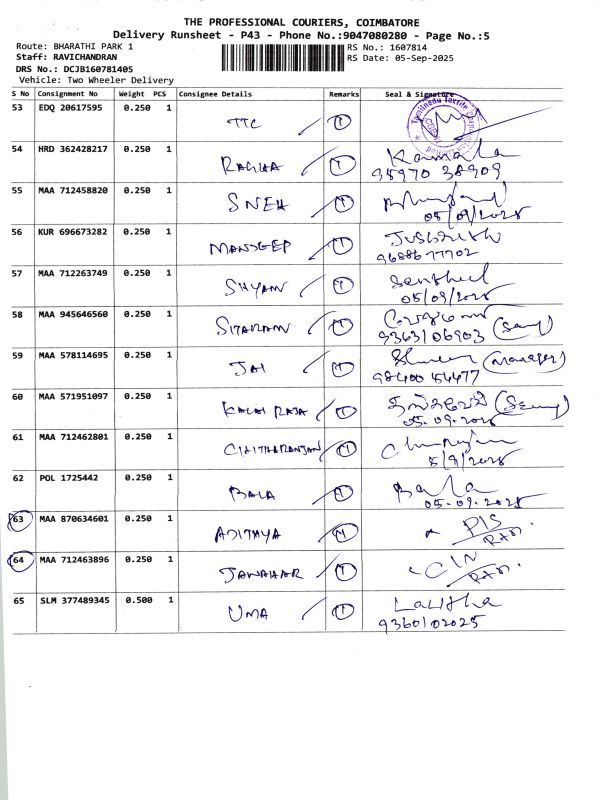 THE PROFESSIONAL COURIERS, COIMBATORE
Delivery Runsheet - P43 - Phone No.:9047080280 - Page No.:5
Route: BHARATHI PARK 1
RS No.: 1607814
Staff: RAVICHANDRAN
RS Date: 05-Sep-2025
DRS No.: DCJB160781405
Vehicle: Two Wheeler Delivery
S No Consignment No Weight PCS Consignee Details Remarks Seal & Signature
53 EDQ 20617595 0.250 1 TTC 1
54 HRD 362428217 0.250 1 RAGHA 1 Kamala
98970 38909
55 MAA 712458820 0.250 1 SNEH 1
05/09/2025
56 KUR 696673282 0.250 1 MANDEEP 1
9688677702
57 MAA 712263749 0.250 1 SHYAM 1 Senthil
05/09/2025
58 MAA 945646560 0.250 1 SITARAM 1
9363106903
59 MAA 578114695 0.250 1 JAI 1 (Manager)
98400 54477
60 MAA 571951097 0.250 1 KALAI RAJA 1
05.09.2025
61 MAA 712462801 0.250 1 CHITHARANJAN 1
5/9/2025
62 POL 1725442 0.250 1 BALA 1 Bala
05.09.2025
63 MAA 870634601 0.250 1 ADITHYA 1 DIS
64 MAA 712463896 0.250 1 JAWAHAR 1 CIN
65 SLM 377489345 0.500 1 UMA 1 Lalitha
9360102025